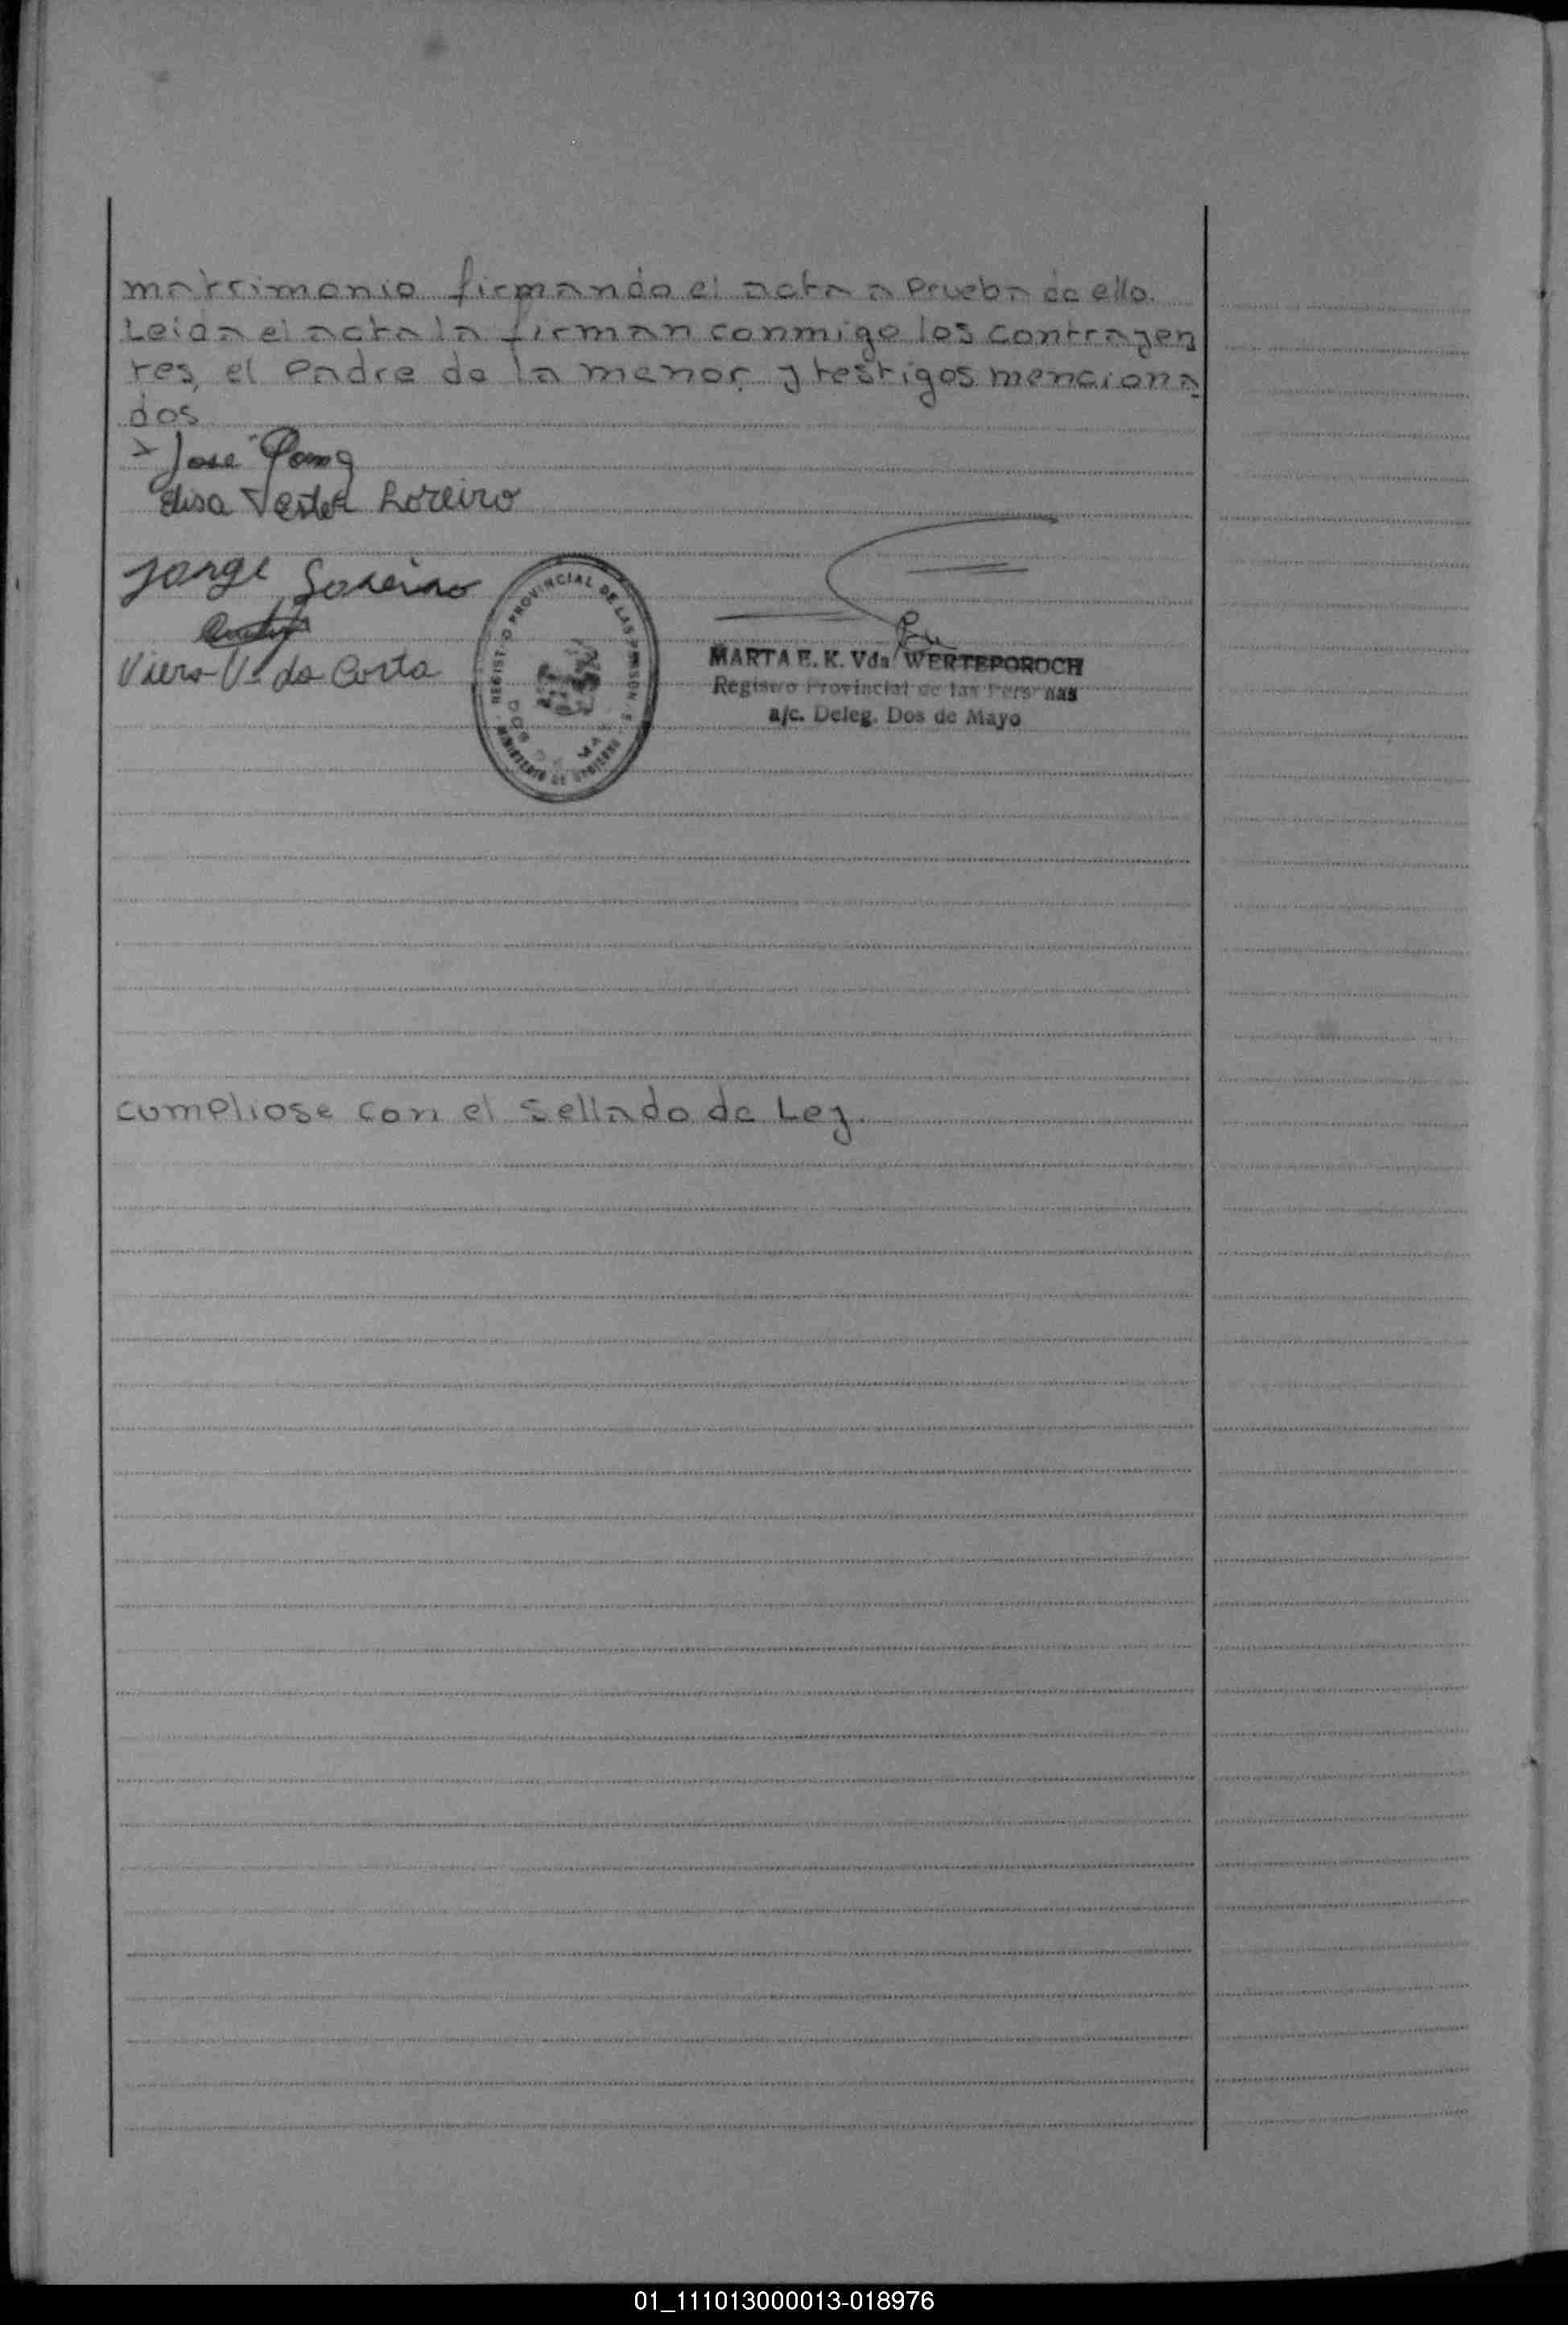 matrimonio firmando el acta a Prueba de ello.
Leida el acta la firman conmigo los contrayen
tes, el Padre de la menor y testigos menciona
dos
José
Elisa Loreiro
Jorge Loreiro
Viera V. da Costa
REGISTRO PROVINCIAL DE LAS PERSONAS
MINISTERIO DE GOBIERNO
DOS DE MAYO
MARTA E. K. Vda WERTEPOROCH
Registro Provincial de las Personas
a/c. Deleg. Dos de Mayo
cumpliose con el sellado de Ley.
01_111013000013-018976